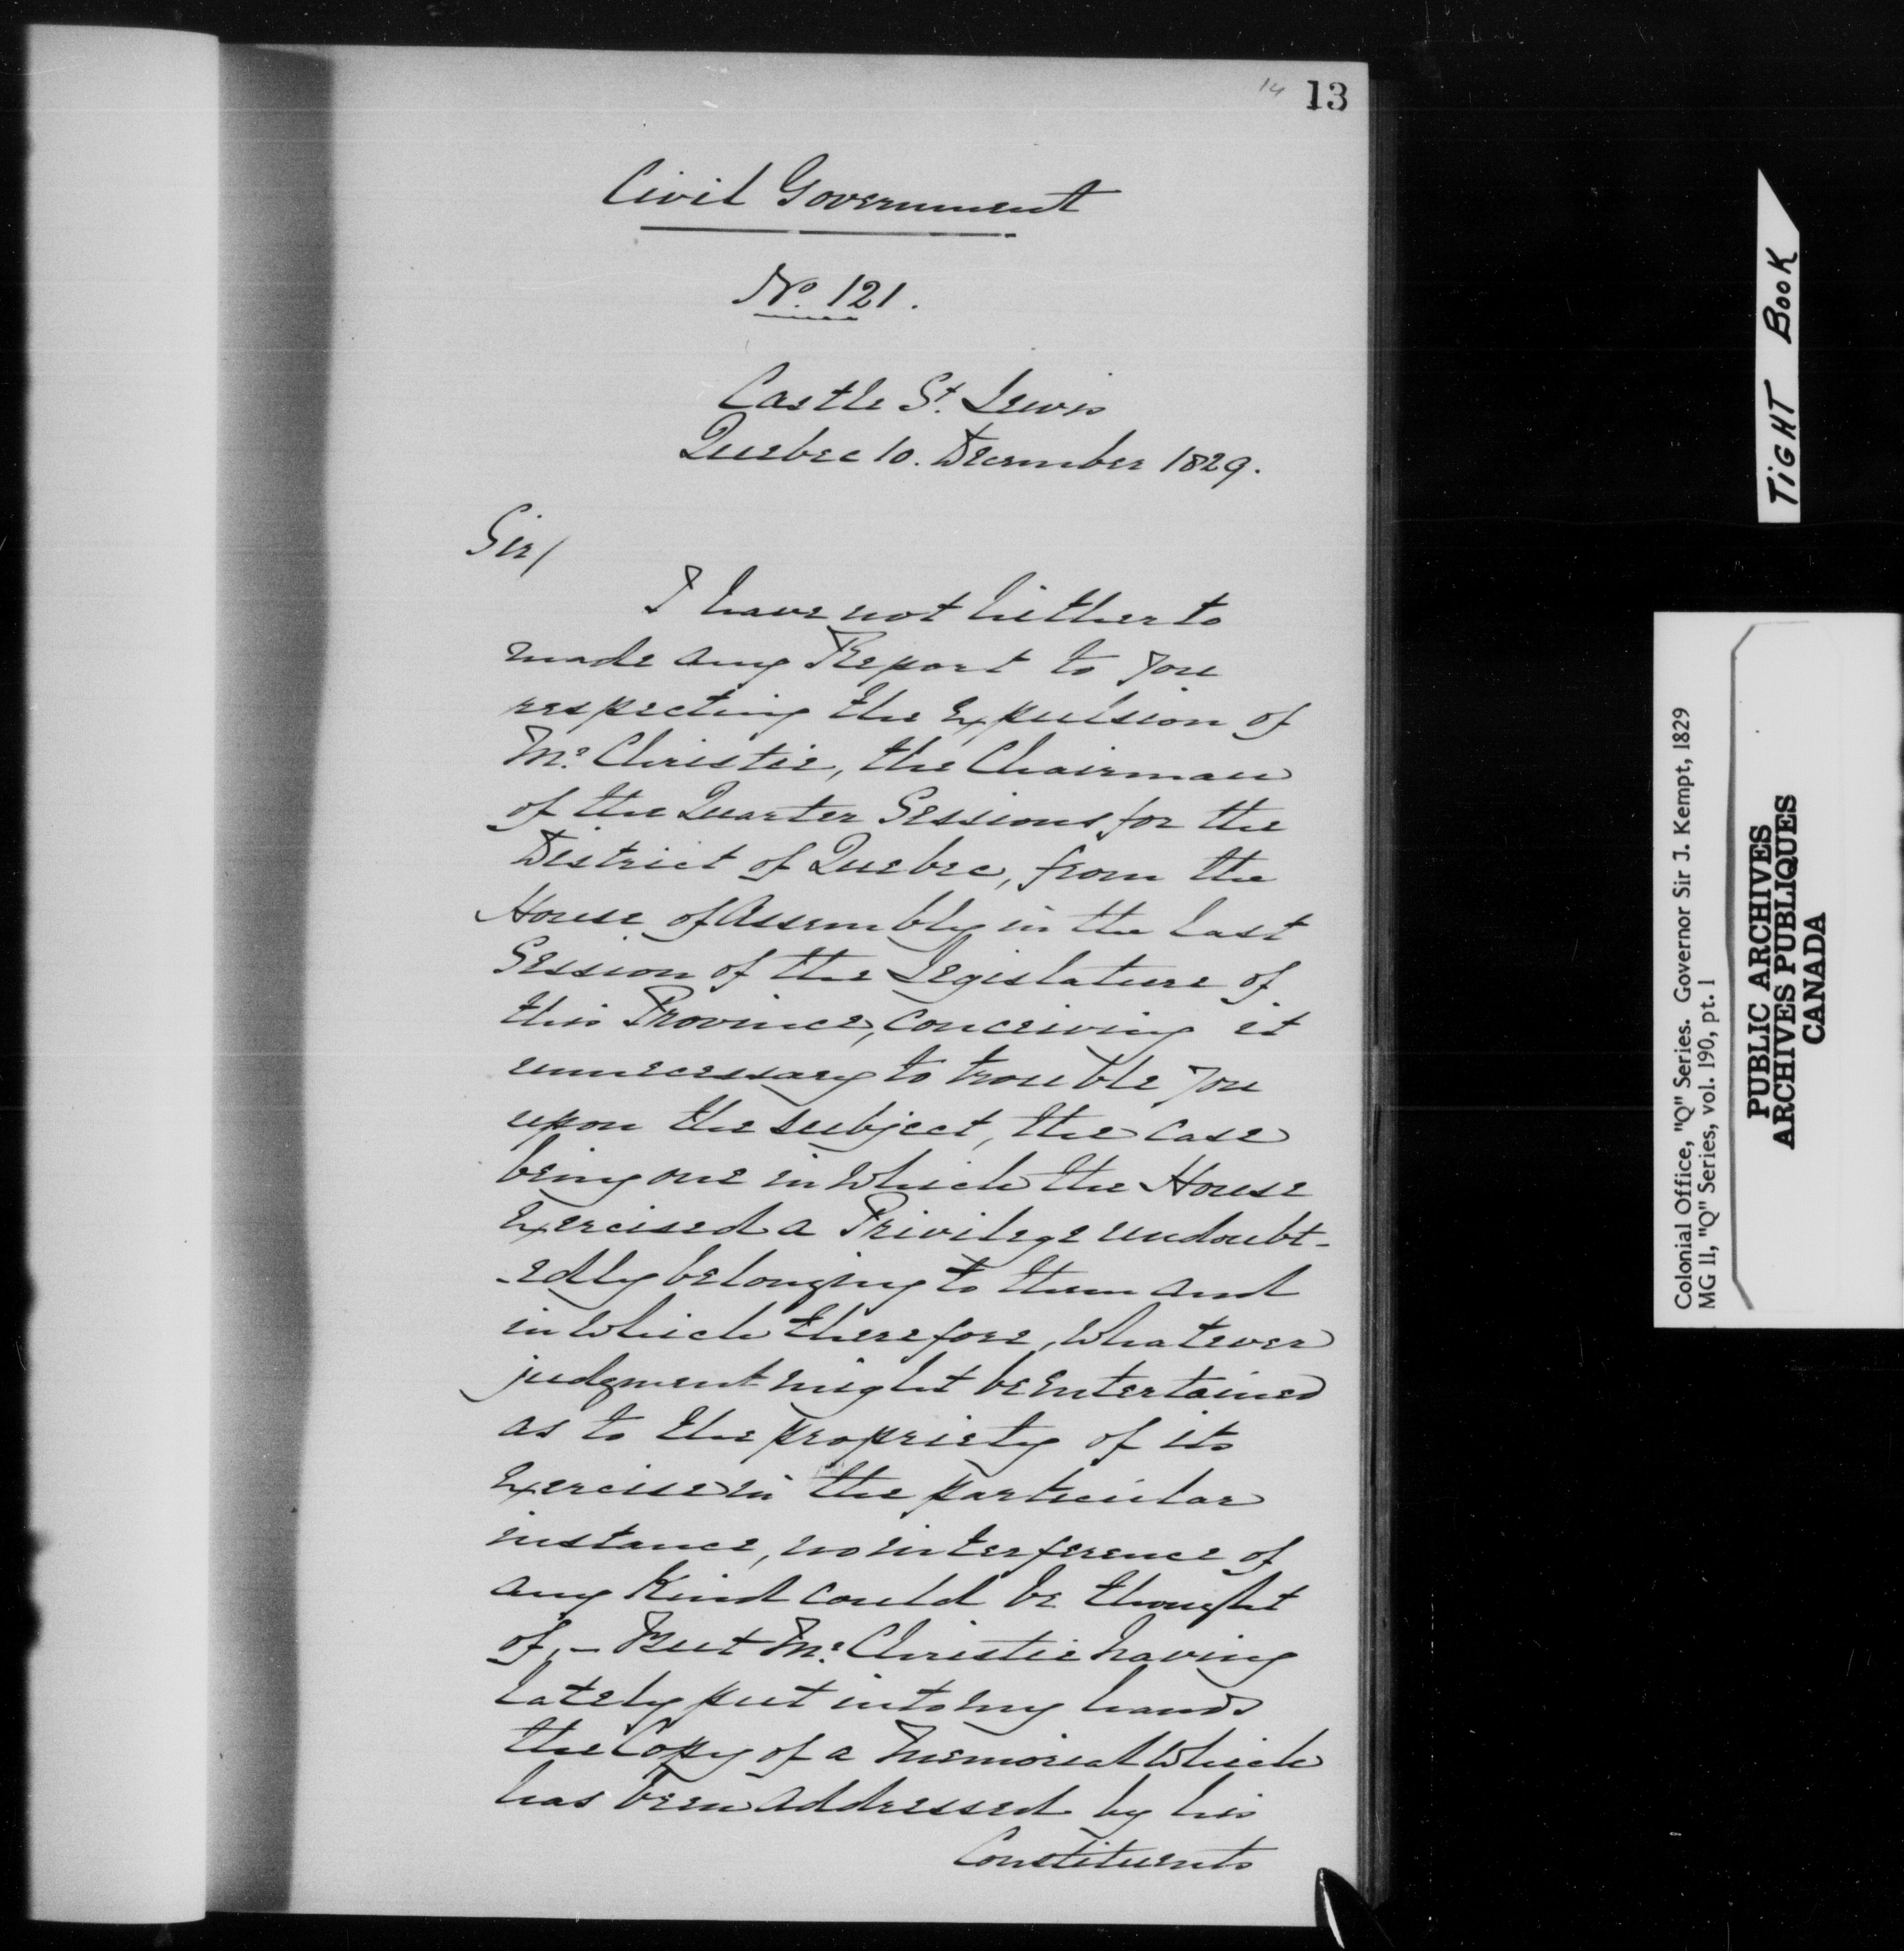 14 13
Civil Government
No. 121.
Castle St. Lewis
Quebec 10. December 1829.
Sir/
I have not hitherto
made any Report to you
respecting the Expulsion of
Mr. Christie, the Chairman
of the Quarter Sessions for the
District of Quebec, from the
House of Assembly in the last
Session of the Legislature of
this Province, conceiving it
unnecessary to trouble you
upon the subject, the case
being one in which the House
Exercised a Privilege undoubt-
-edly belonging to them and
in which therefore, whatever
judgment might be entertained
as to the propriety of its
Exercise in the particular
instance, no interference of
any Kind could be thought
of, – But Mr. Christie having
lately put into my hands
the Copy of a Memorial which
has been addressed by his
Constituents
TIGHT BOOK
Colonial Office, "Q" Series. Governor Sir J. Kempt, 1829
MG 11, "Q" Series, vol. 190, pt. 1
PUBLIC ARCHIVES
ARCHIVES PUBLIQUES
CANADA